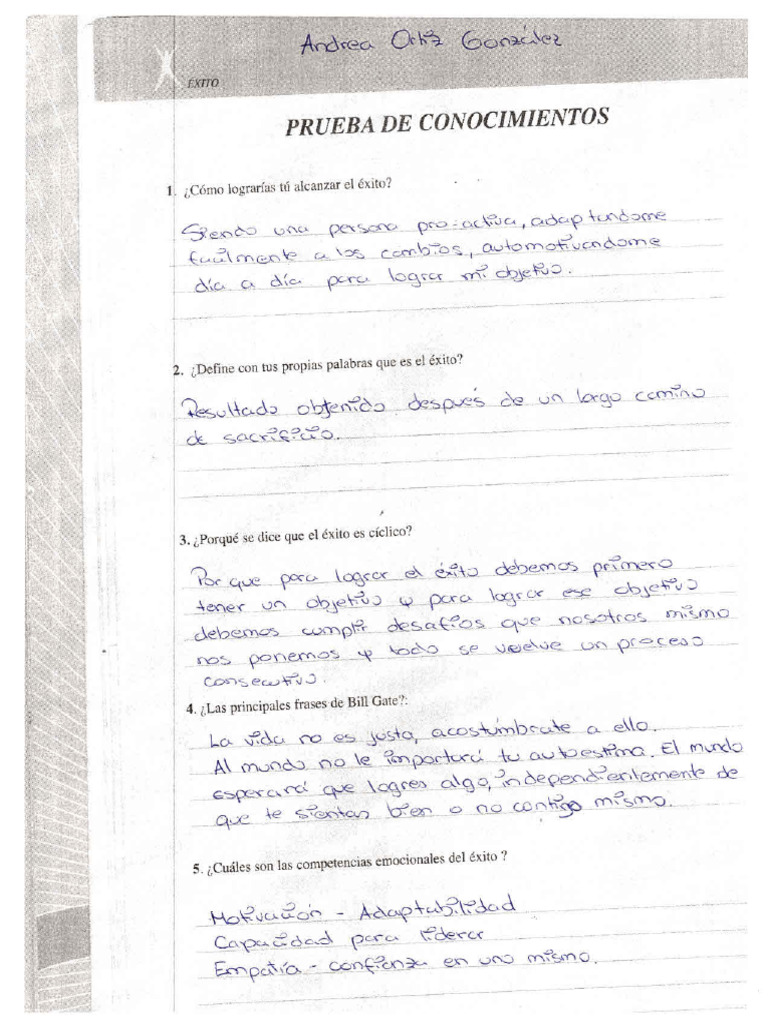 Andrea Ortiz González
ÉXITO
PRUEBA DE CONOCIMIENTOS
1. ¿Cómo lograrías tú alcanzar el éxito?
Siendo una persona pro-activa, adaptandome
facilmente a los cambios, automotivandome
día a día para lograr mi objetivo.
2. ¿Define con tus propias palabras que es el éxito?
Resultado obtenido después de un largo camino
de sacrificio.
3. ¿Porqué se dice que el éxito es cíclico?
Por que para lograr el éxito debemos primero
tener un objetivo y para lograr ese objetivo
debemos cumplir desafíos que nosotros mismo
nos ponemos y todo se vuelve un proceso
consecutivo.
4. ¿Las principales frases de Bill Gate?:
La vida no es justa, acostúmbrate a ello.
Al mundo no le importará tu autoestima. El mundo
esperará que logres algo, independientemente de
que te sientas bien o no contigo mismo.
5. ¿Cuáles son las competencias emocionales del éxito ?
Motivación - Adaptabilidad
Capacidad para liderar
Empatía - confianza en uno mismo.